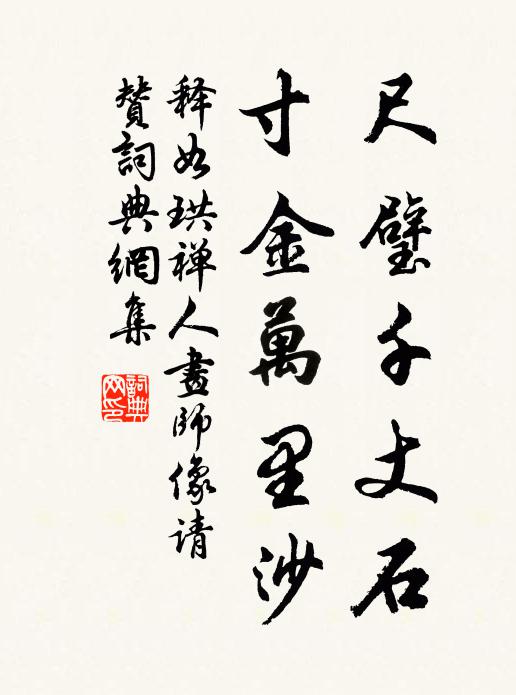 尺璧千丈石
寸金萬里沙
释如珙禅人畫師像請
贊詞典網集
詞典
网印